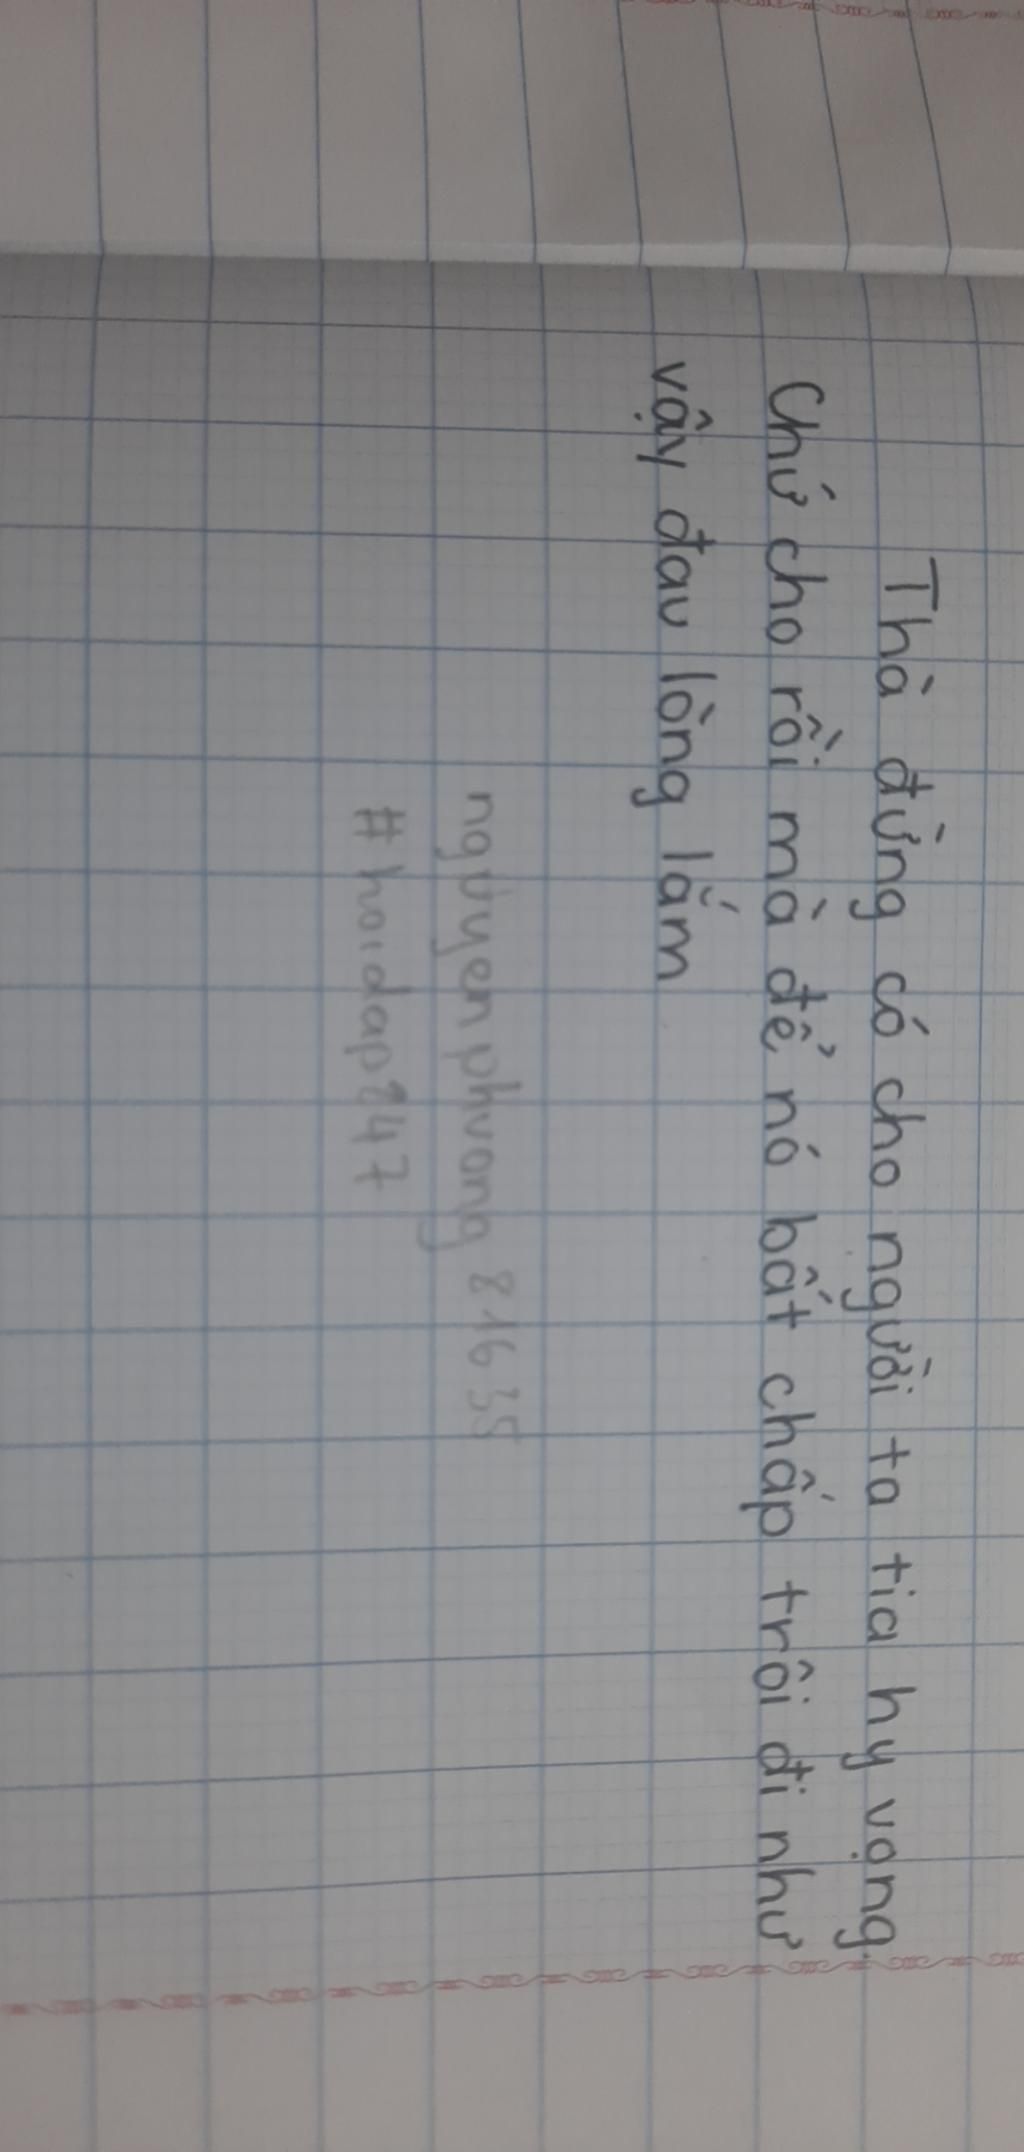 Thà đừng có cho người ta tia hy vọng.
Chứ cho rồi mà để nó bất chấp trôi đi như
vậy đau lòng lắm
nguyenphuong 81635
#hoidap247